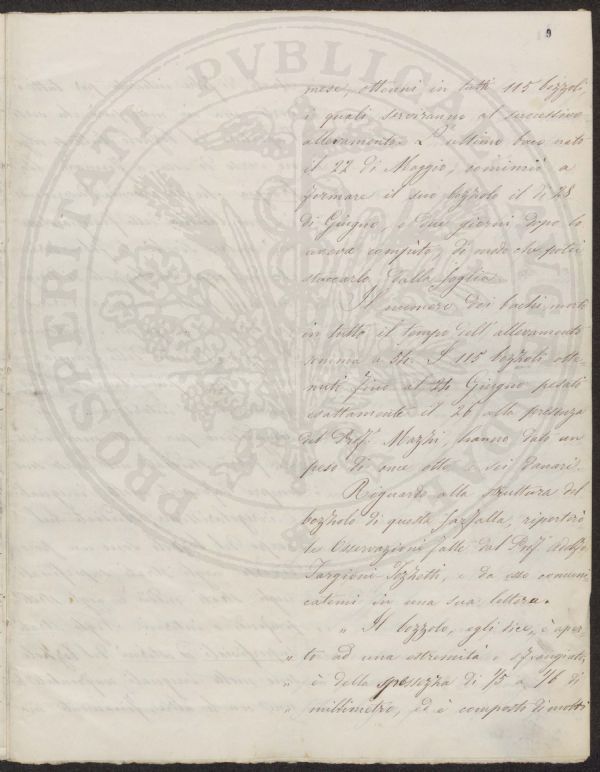 9
mese, ottenni in tutti 115 bozzoli,
i quali serviranno al successivo
allevamento. L'ultimo baco nato
il 22 di Maggio, cominciò a
formare il suo bozzolo il dì 28
di Giugno, e due giorni dopo lo
aveva compito, di modo che potei
staccarlo dalla foglia.
Il numero dei bachi morti
in tutto il tempo dell'allevamento
somma a 54. I 115 bozzoli otte-
nuti fino al 24 Giugno pesati
esattamente il 26 alla presenza
del Prof. Mazzi, hanno dato un
peso di once otto e sei danari.
Riguardo alla struttura del
bozzolo di questa farfalla, riporterò
le Osservazioni fatte dal Prof. Adolfo
Targioni Tozzetti, e da esso comuni
catemi in una sua lettera.
" Il bozzolo, egli dice, è aper-
" to ad una estremità e sfrangiato,
" è della spessezza di 1/5 a 1/6 di
" millimetro, ed è composto di molti
PROSPERITATI PUBLICAE